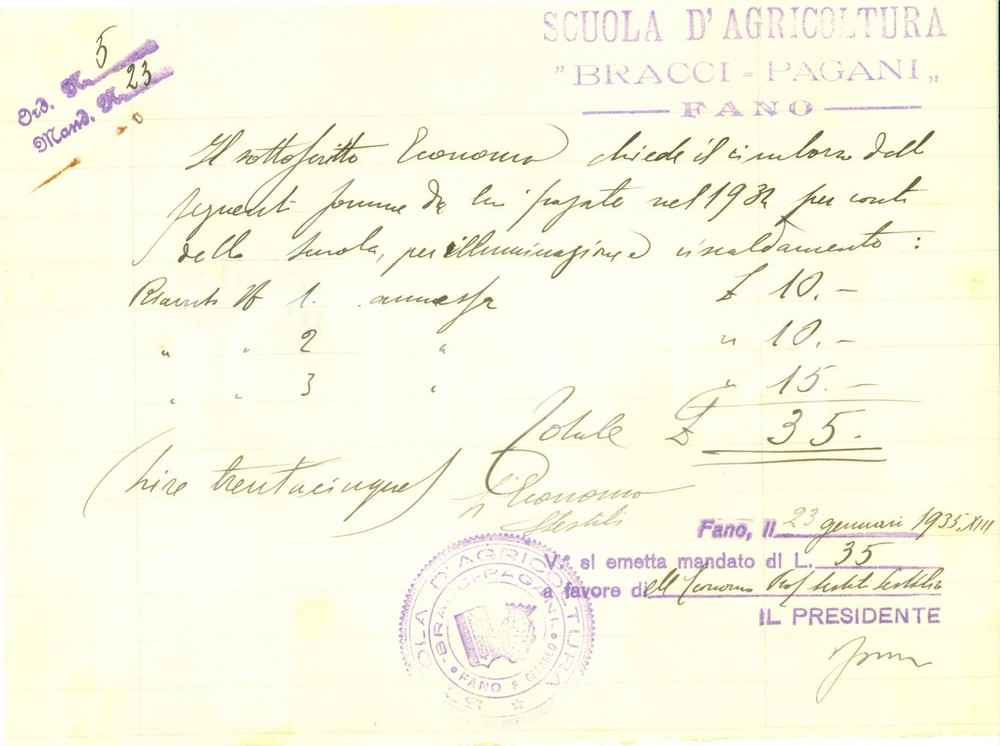 SCUOLA D'AGRICOLTURA
"BRACCI=PAGANI„
FANO
Ord. N. 5
Mand. N. 23
Il sottoscritto Economo chiede il rimborso delle
seguenti somme da lui pagate nel 1934 per conto
della Scuola, per illuminazione e riscaldamento:
N° 1. annessa £ 10.-
" " 2 " " 10.-
" " 3 " " 15.-
Totale £ 35.-
(Lire trentacinque)
L'Economo
Fano, li 23 gennari 1935.XIII
V.° si emetta mandato di L. 35
a favore di Economo Prof.
IL PRESIDENTE
SCUOLA D'AGRICOLTURA
BRACCI-PAGANI
FANO S. CESAREO